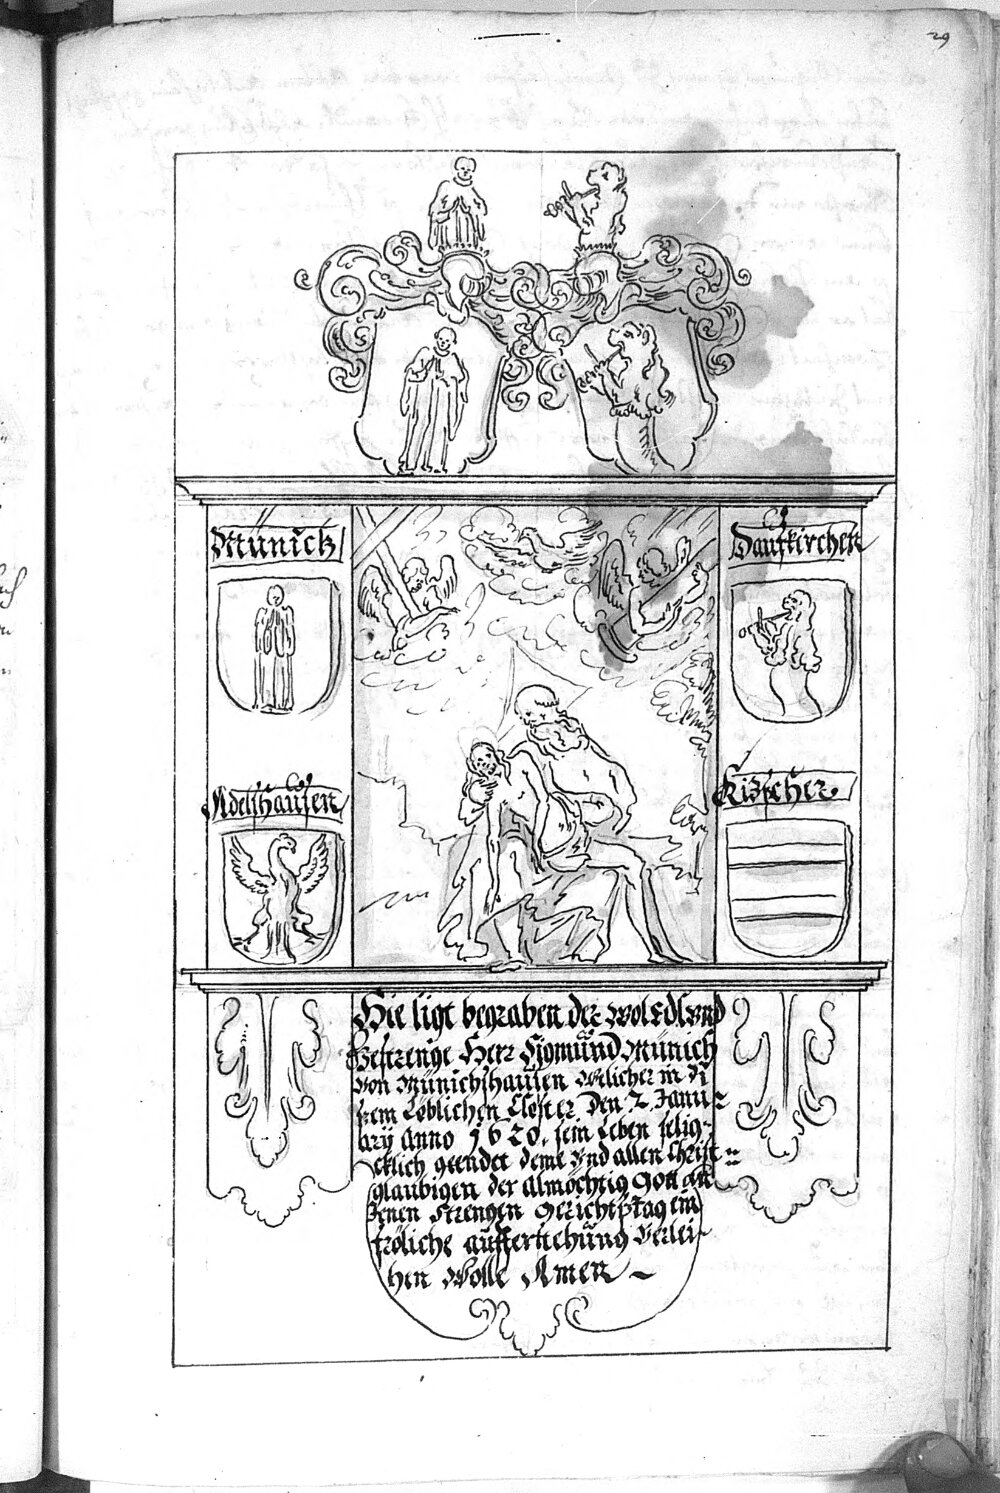 29
Münich
Daufkirchen
Adelshausen
Kizscher
Hie ligt begraben der wol Edl vnd
Gestrenge Herr Sigmund Münich
von Münichshausen welicher in di
sem Löblichen Closter den 2. Janu-
ary Anno 1620. sein Leben selig-
cklich geendet deme vnd allen Christ=
glaubigen der Almöchtig Gott an
Jenen strengen Gerichtstag ein
fröliche aufferstehung verlei-
hen Wolle Amen ~